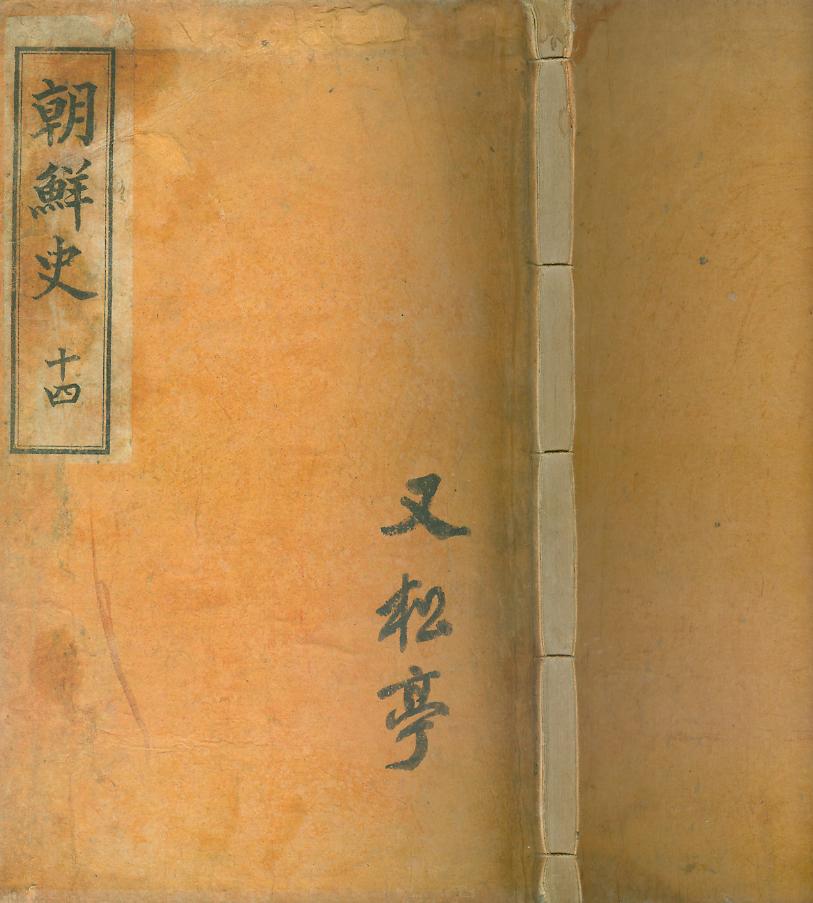 朝鮮史 十四
又松亭